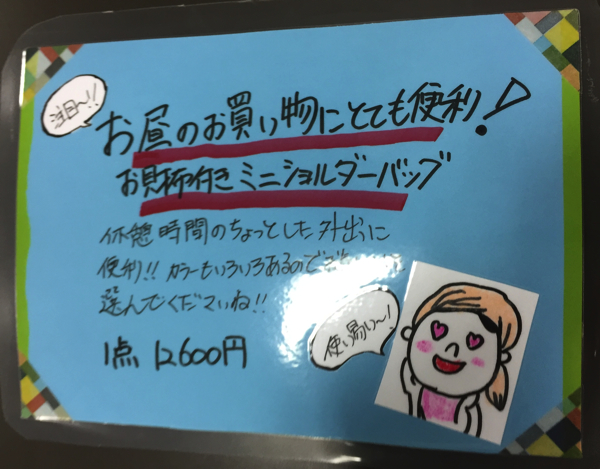 注目〜!!
お昼のお買い物にとても便利!
お財布付きミニショルダーバッグ
休憩時間のちょっとした外出に
便利!! カラーもいろいろあるので
選んでくださいね!!
使い易い〜!
1点 12,600円